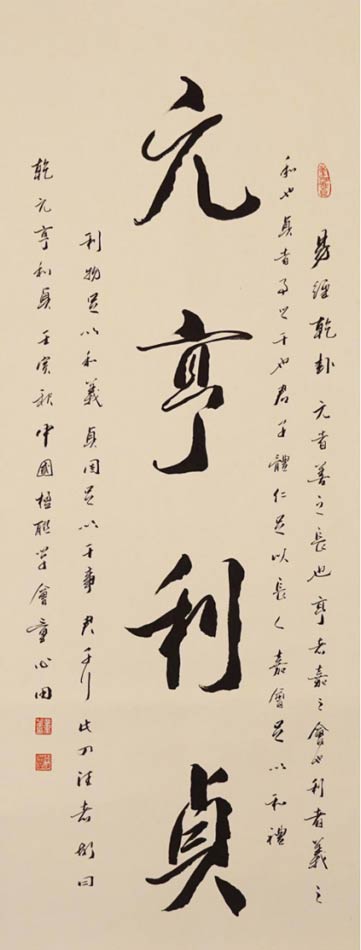 易經乾卦 元者善之長也亨者嘉之會也利者義之
和也貞者事之干也君子體仁足以長人嘉會足以和禮
元亨利貞
利物足以和義貞固足以干事君子行此四德者故曰
乾元亨利貞 壬寅秋中國楹聯学會童心田